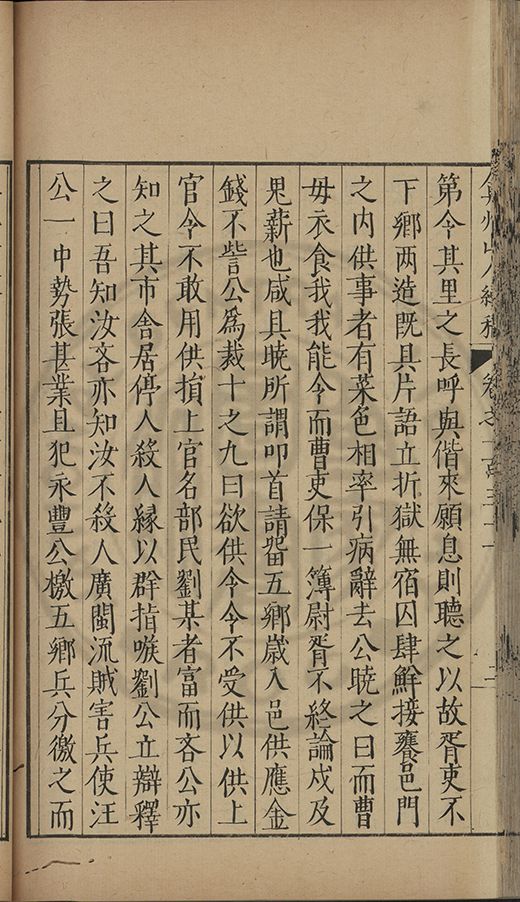 弇州山人續稿 卷之一百三十一
第令其里之長呼與偕來願息則聽之以故胥吏不
下鄉两造既具片語立折獄無宿囚肆鮮接饔邑門
之内供事者有菜色相率引病辭去公曉之曰而曹
毋衣食我我能令而曹吏保一簿尉胥不終論戍及
鬼薪也咸具曉所謂叩首請留五鄉歲入邑供應金
錢不訾公爲裁十之九曰欲供令令不受供以供上
官令不敢用供損上官名部民劉某者富而吝公亦
知之其市舍居停人殺人縁以群指嗾劉公立辯釋
之曰吾知汝吝亦知汝不殺人廣閩流賊害兵使汪
公一中勢張甚業且犯永豐公檄五鄉兵分徼之而